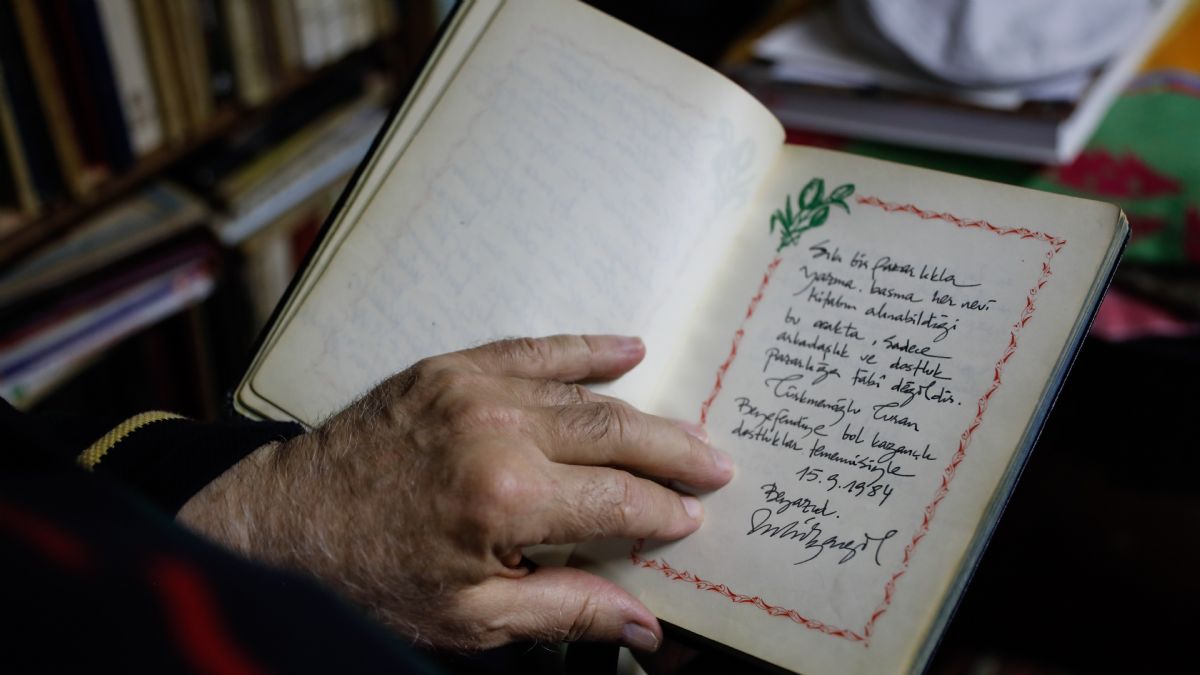 Sıkı bir pazarlıkla
yazma. basma her nevi
kitabın alınabildiği
bu sokakta, sadece
arkadaşlık ve dostluk
pazarlığa tabî değildir.
Türkmenoğlu Turan
Beyefendiye bol kazançlı
dostluklar temennisiyle
15.9.1984
Beyazıd.